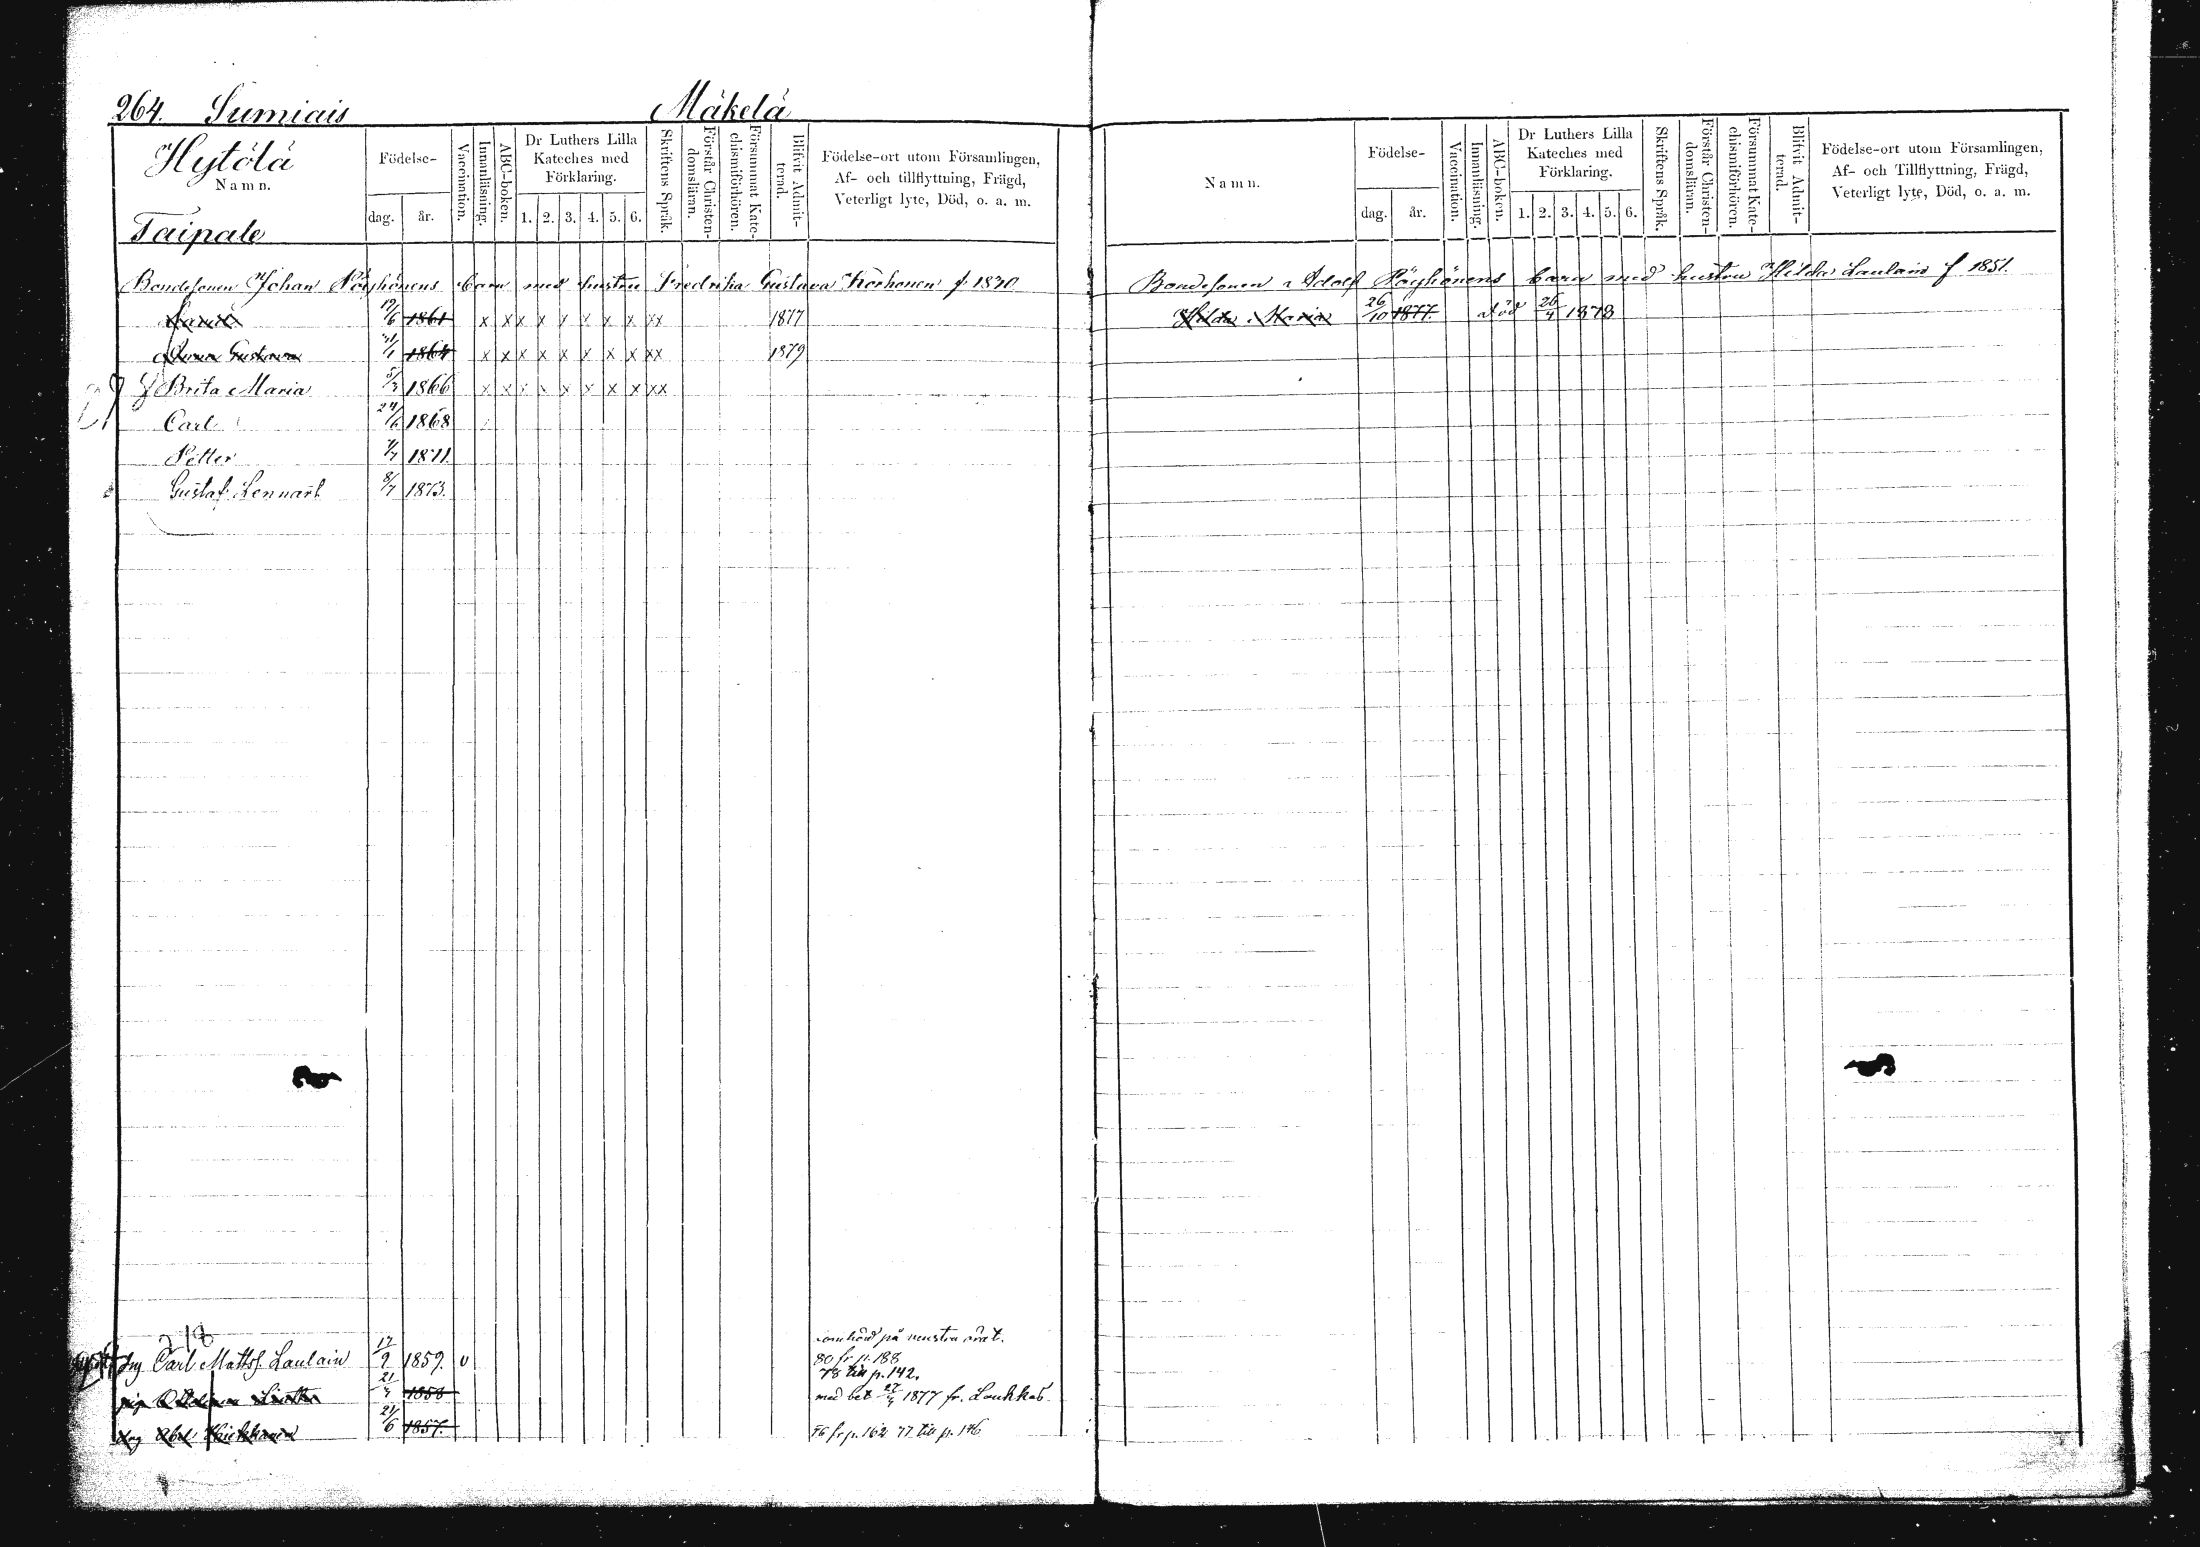 264. Sumiais Mäkelä
Hytölä
Namn.
Taipale
Födelse-
dag. år.
Vaccination.
Innanläsning.
ABC-boken.
Dr Luthers Lilla
Kateches med
Förklaring.
1. 2. 3. 4. 5. 6.
Skriftens Språk.
Förstår Christen-
domsläran.
Försummat Kate-
chismiförhören.
Blifvit Admit-
terad.
Födelse-ort utom Församlingen,
Af- och tillflyttning, Frägd,
Veterligt lyte, Död, o. a. m.
Bondesonen Johan Pöyhönens barn med hustru Fredrika Gustava Korhonen f. 1830
1861 x x x x x x x x x x x 1877
Gustava 1864 x x x x x x x x x x 1879
Brita Maria 5/3 1866 x x x x x x x x x x
Carl 24/6 1868
Petter 1871.
Gustaf Lennart 8/7 1873.
Carl Matts. Laulain 17/9 1859. v
80 fr p. 188
78 till p. 142.
21 1858 med bet 27/4 1877 fr. Laukkas
Abel 21/6 1857. 76 fr p. 162 77 till p. 146
Namn.
Födelse-
dag. år.
Vaccination.
Innanläsning.
ABC-boken.
Dr Luthers Lilla
Kateches med
Förklaring.
1. 2. 3. 4. 5. 6.
Skriftens Språk.
Förstår Christen-
domsläran.
Försummat Kate-
chismiförhören.
Blifvit Admit-
terad.
Födelse-ort utom Församlingen,
Af- och Tillflyttning, Frägd,
Veterligt lyte, Död, o. a. m.
Bondesonen Adolf Pöyhönens barn med hustru Hilda Laulain f. 1851.
Hilda Maria 26/10 1877. död 26/4 1878